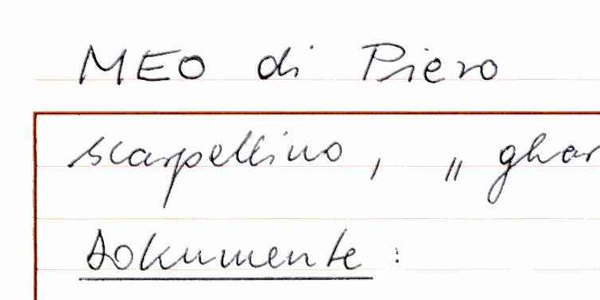 MEO di Piero
scarpellino, „ ghar
Dokumente: